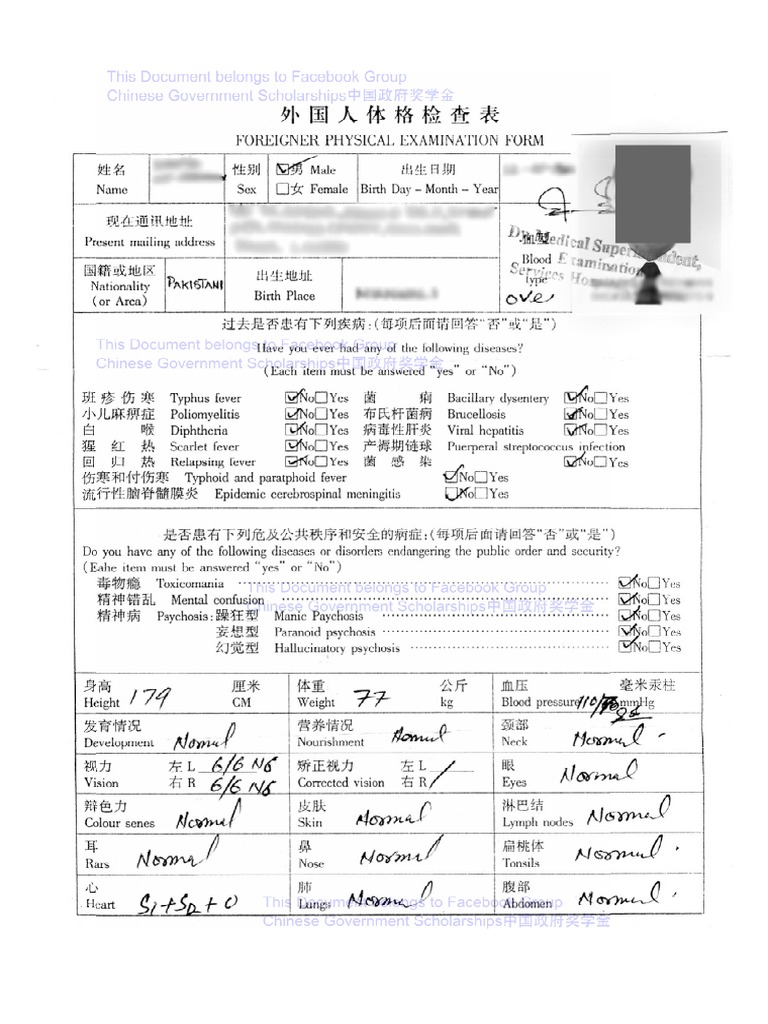 This Document belongs to Facebook Group
Chinese Government Scholarships中国政府奖学金
外国人体格检查表
FOREIGNER PHYSICAL EXAMINATION FORM
姓名 性别 男 Male 出生日期
Name Sex 女 Female Birth Day - Month - Year
现在通讯地址
Present mailing address
Dy. Medical Superintendent,
Examination
Services
血型
Blood
type
国籍或地区 PAKISTANI 出生地址
Nationality Birth Place
(or Area)
过去是否患有下列疾病:(每项后面请回答"否"或"是")
This Document belongs to Facebook Group
Have you ever had any of the following diseases?
Chinese Government Scholarships中国政府奖学金
(Each item must be answered "yes" or "No")
班疹伤寒 Typhus fever No Yes 菌 痢 Bacillary dysentery No Yes
小儿麻痹症 Poliomyelitis No Yes 布氏杆菌病 Brucellosis No Yes
白 喉 Diphtheria No Yes 病毒性肝炎 Viral hepatitis No Yes
猩 红 热 Scarlet fever No Yes 产溽期链球 Puerperal streptococcus infection
回 归 热 Relapsing fever No Yes 菌 感 染 No Yes
伤寒和付伤寒 Typhoid and paratphoid fever No Yes
流行性脑脊髓膜炎 Epidemic cerebrospinal meningitis No Yes
是否患有下列危及公共秩序和安全的病症:(每项后面请回答"否"或"是")
Do you have any of the following diseases or disorders endangering the public order and security?
(Eahe item must be answered "yes" or "No")
毒物瘾 Toxicomania No Yes
This Document belongs to Facebook Group
精神错乱 Mental confusion No Yes
Chinese Government Scholarships中国政府奖学金
精神病 Psychosis:躁狂型 Manic Paychosis No Yes
妄想型 Paranoid psychosis No Yes
幻觉型 Hallucinatory psychosis No Yes
身高 厘米 体重 公斤 血压 毫米汞柱
Height 179 CM Weight 77 kg Blood pressure 110/ mmHg
发育情况 营养情况 颈部
Development Normal Nourishment Normal Neck Normal
视力 左 L 6/6 N6 矫正视力 左 L 眼
Vision 右 R 6/6 N6 Corrected vision 右 R Eyes Normal
辩色力 皮肤 淋巴结
Colour senes Normal Skin Normal Lymph nodes Normal
耳 鼻 扁桃体
Rars Normal Nose Normal Tonsils Normal
心 肺 腹部
Heart S1+S2+0 Lungs Normal Abdomen Normal
This Document belongs to Facebook Group
Chinese Government Scholarships中国政府奖学金